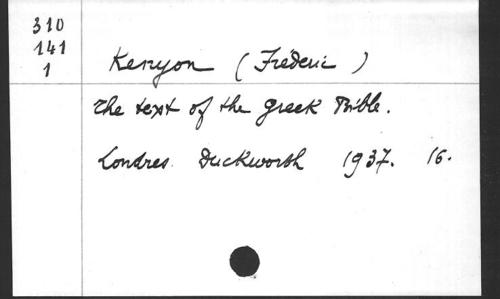 310
141
1
Kenyon (Fréderic)
The text of the greek Bible.
Londres. Duckworth 1937. 16.